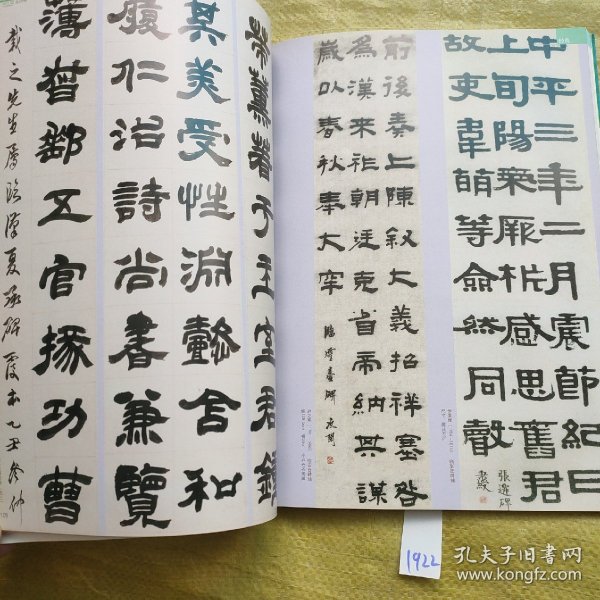 中平三年二月震節紀日
上旬陽氣厥析感思舊君
故吏韋萌等僉然同聲
張遷碑
前後奏上陳叙大義招祥塞咎
為漢來祚朝廷克省帝納其謀
歲以春秋奉大牢
臨靈臺碑
榮薰著于王室君鍾
其美受性淵懿含和
履仁治詩尚書兼覽
薄督郵五官掾功曹
之先生屬臨漢夏承碑 乙丑冬仲
1922
孔夫子旧书网
www.kongfz.com